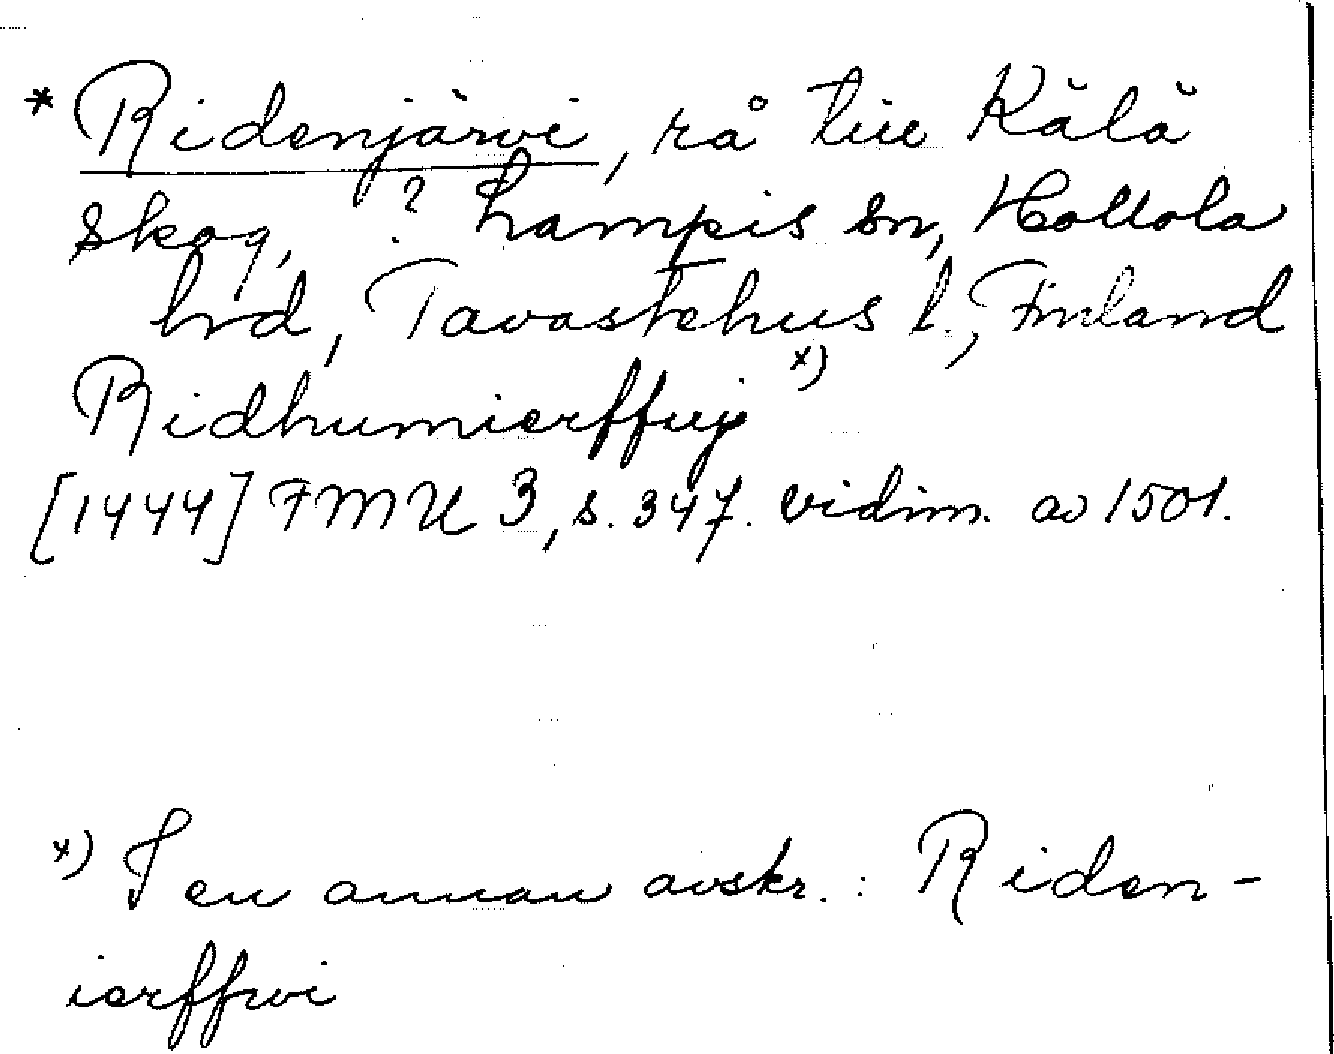 * Ridenjärvi, rå till Kälä
skog, ? Lampis sn, Hollola
hrd, Tavastehus l., Finland
Ridhumierffuj x)
[1444] FMU 3, s. 347. vidim. av 1501.
x) I en annan avskr. : Riden-
ierffwi